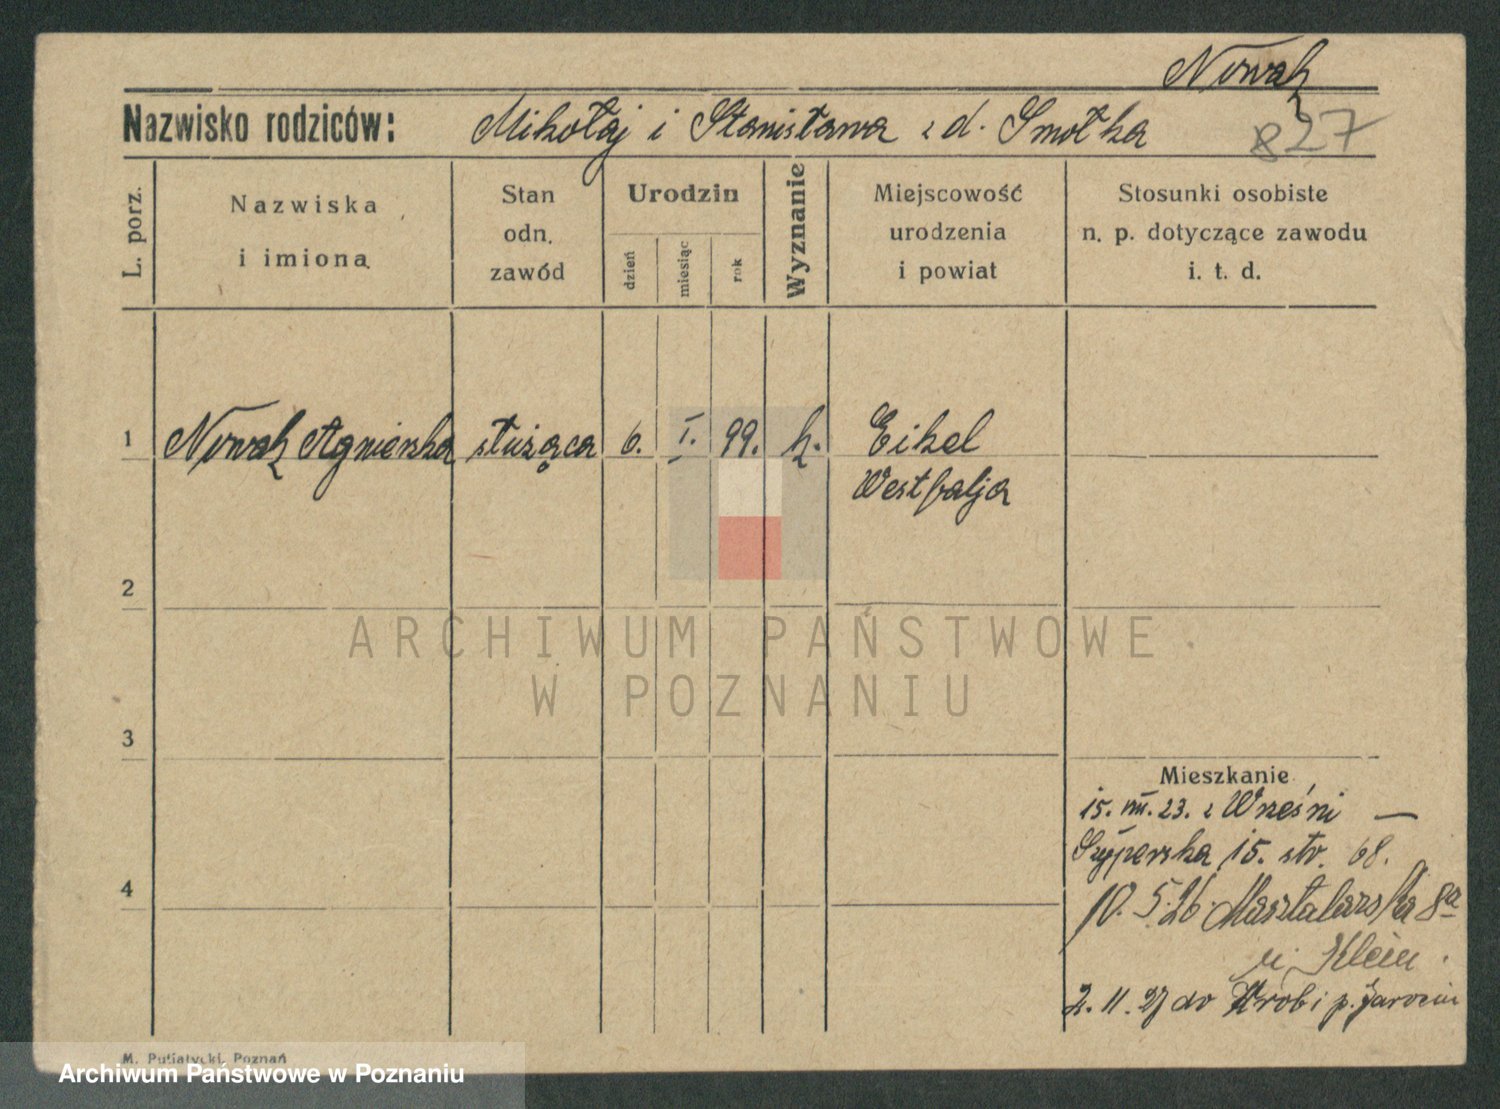 Nowak
Nazwisko rodziców: Mikołaj i Stanisława z d. Smółka 827
L. porz.
Nazwiska
i imiona
Stan
odn.
zawód
Urodzin
dzień
miesiąc
rok
Wyznanie
Miejscowość
urodzenia
i powiat
Stosunki osobiste
n. p. dotyczące zawodu
i. t. d.
1 Nowak Agnieszka służąca 6. I. 99. k. Eikel
Westfalja
2
ARCHIWUM PAŃSTWOWE
W POZNANIU
3
Mieszkanie
15. VIII. 23. z Wrześni —
Szyperska 15. str. 68.
4
10. 5. 26. Masztalarska 8a
u. Klein.
2. 11. 27 do p. Jarocin
M. Putiatycki, Poznań
Archiwum Państwowe w Poznaniu